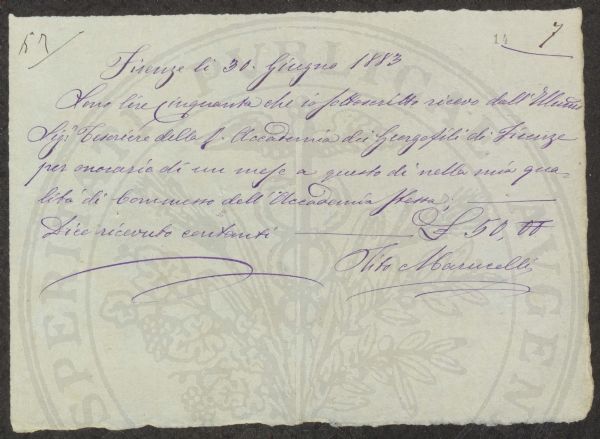 14 7
Firenze li 30. Giugno 1883
Sono lire cinquanta che io sottoscritto ricevo dall'Illmo
Sigr Tesoriere della R. Accademia dei Georgofili di Firenze
per onorario di un mese a questo dì nella mia qua-
lità di Commesso dell'Accademia stessa;
Dico ricevuto contanti £ 50,00
Tito Marucelli